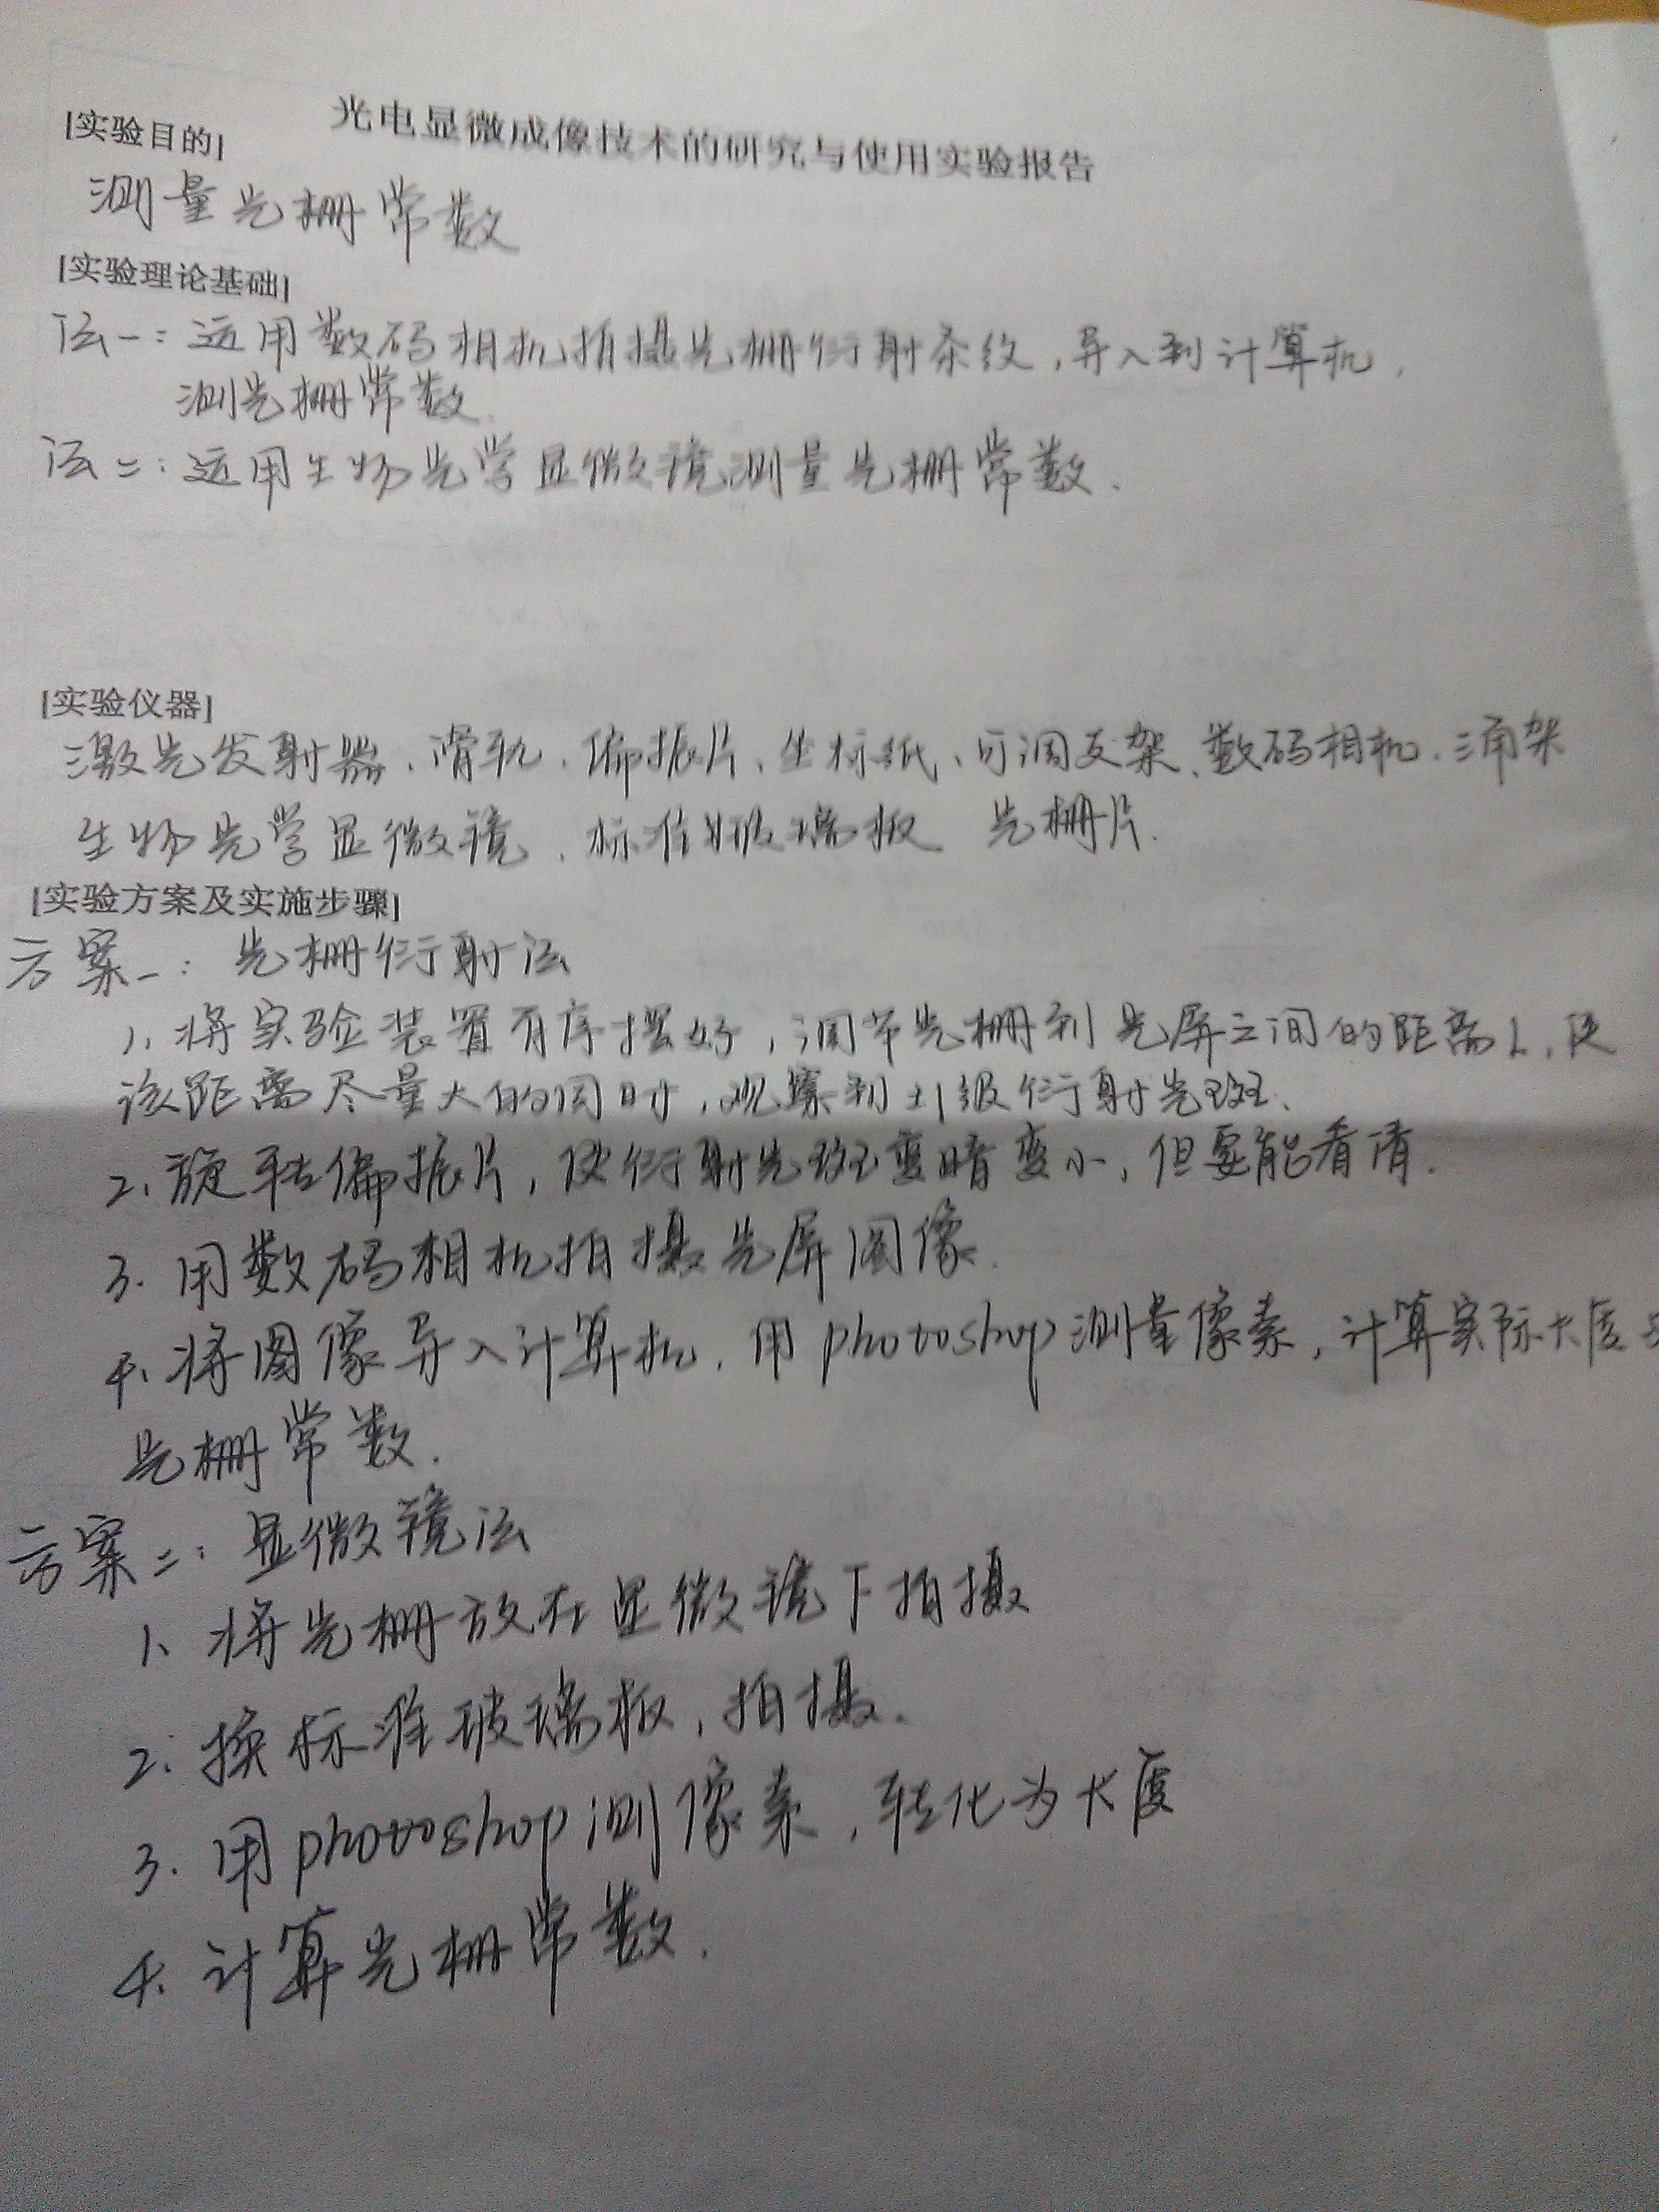 光电显微成像技术的研究与使用实验报告
[实验目的]
测量光栅常数
[实验理论基础]
法一：运用数码相机拍摄光栅衍射条纹，导入到计算机，
测光栅常数.
法二：运用生物光学显微镜测量光栅常数.
[实验仪器]
激光发射器、滑轨、偏振片、坐标纸、可调支架、数码相机、三角架
生物光学显微镜、标准玻璃板 光栅片.
[实验方案及实施步骤]
方案一：光栅衍射法
1、将实验装置有序摆好，调节光栅到光屏之间的距离L，使
该距离尽量大的同时，观察到±1级衍射光斑、
2、旋转偏振片，使衍射光斑变暗变小，但要能看清.
3. 用数码相机拍摄光屏图像.
4、将图像导入计算机，用photoshop测量像素，计算实际长度
光栅常数.
方案二：显微镜法
1、将光栅放在显微镜下拍摄
2、换标准玻璃板，拍摄.
3. 用photoshop测像素，转化为长度
4. 计算光栅常数.